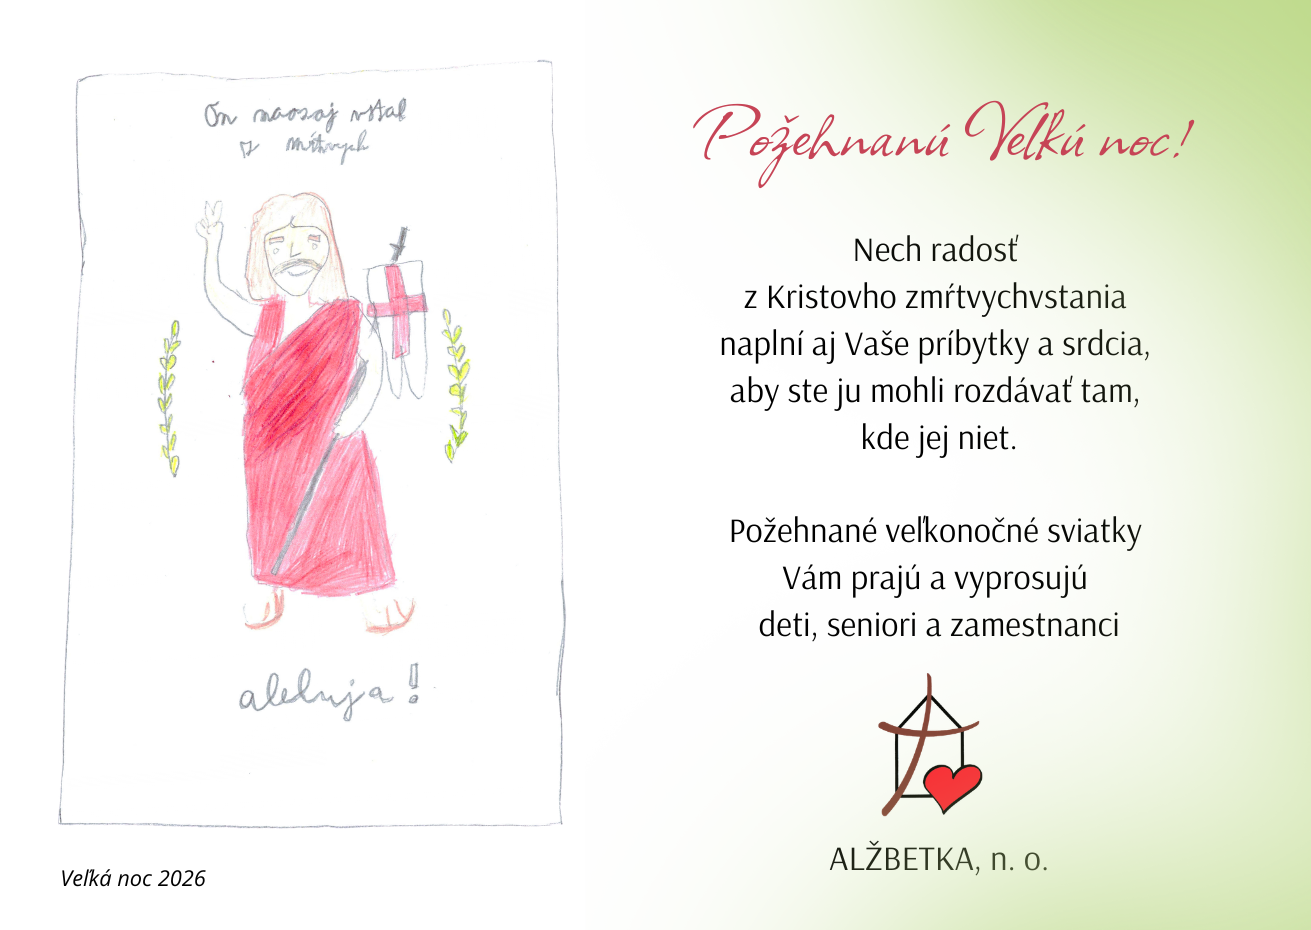 On naozaj vstal
z mŕtvych
aleluja!
Veľká noc 2026
Požehnanú Veľkú noc!
Nech radosť
z Kristovho zmŕtvychvstania
naplní aj Vaše príbytky a srdcia,
aby ste ju mohli rozdávať tam,
kde jej niet.
Požehnané veľkonočné sviatky
Vám prajú a vyprosujú
deti, seniori a zamestnanci
ALŽBETKA, n. o.